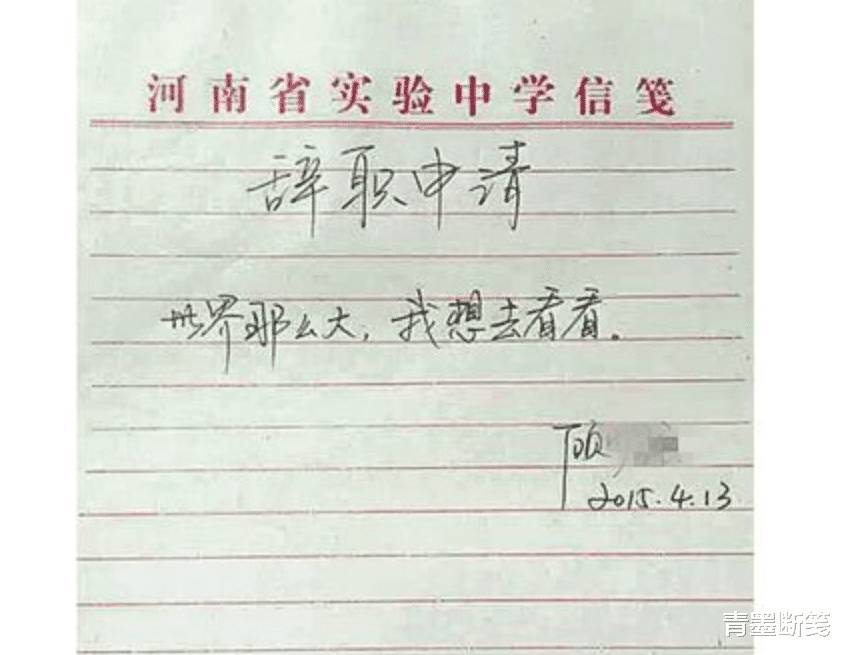 河南省实验中学信笺
辞职申请
世界那么大，我想去看看。
顾
2015.4.13
青墨断笺